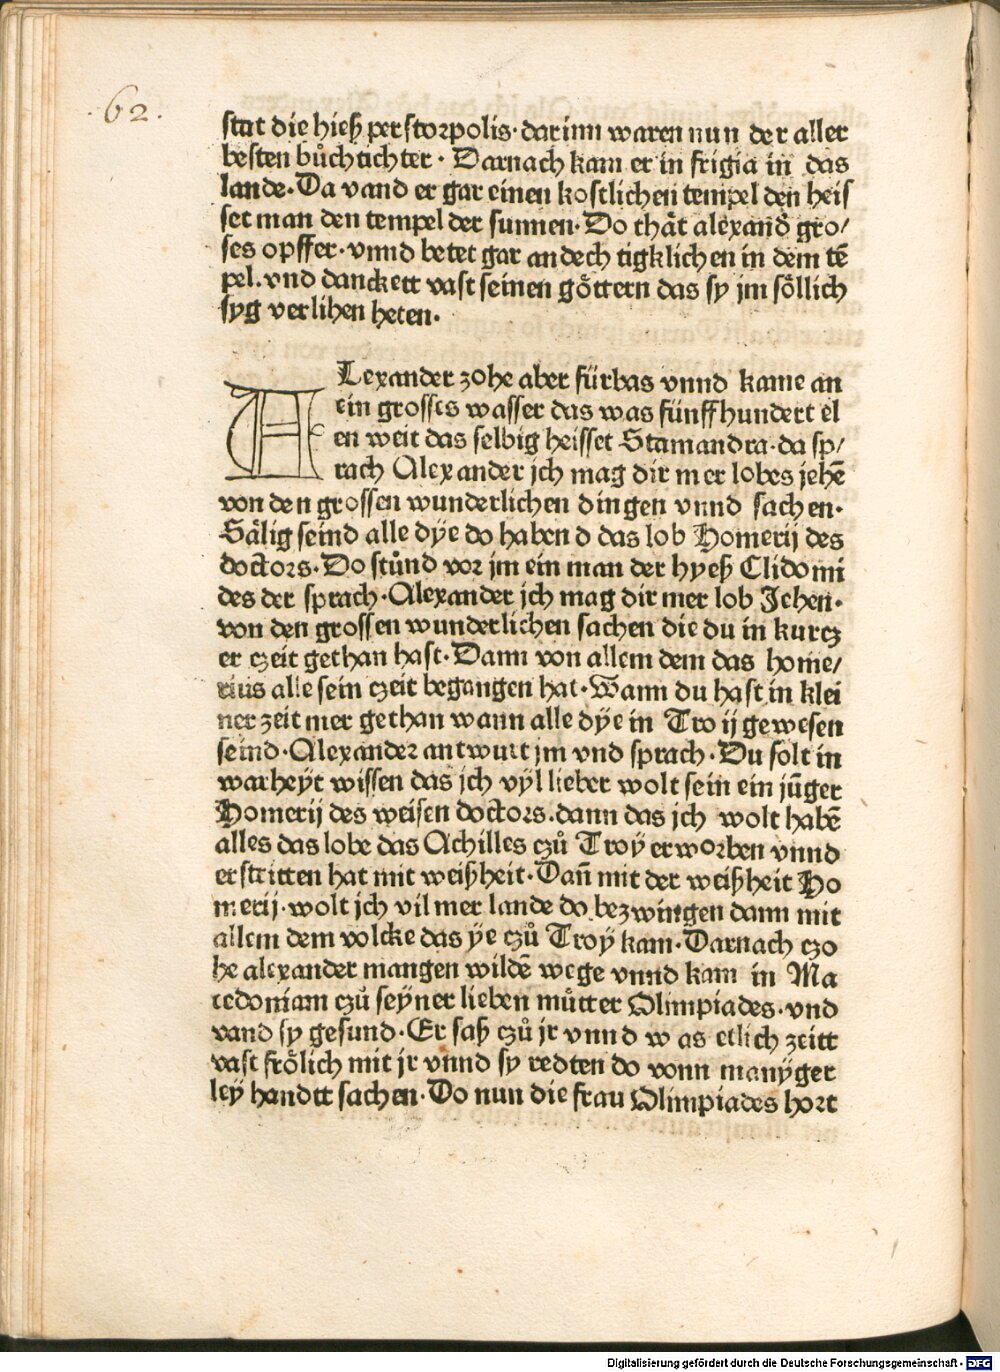 62.
stat die hieß perstorpolis· darinn waren nun der aller
besten bůchtichter · Darnach kam er in frigia in das
lande· Da vand er gar einen kostlichen tempel den heis
set man den tempel der sunnen· Do thät alexander gro/
ses opffer· vnnd betet gar andechtigklichen in dem tē
pel. vnd danckett vast seinen göttern das sy jm söllich
syg verlihen heten·
ALexander zohe aber fürbas vnnd kame an
ein grosses wasser das was fünffhundert el
en weit das selbig heisset Stamandra· da sp/
rach Alexander jch mag dir mer lobes jehē
von den grossen wunderlichen dingen vnnd sachen·
Sälig seind alle dÿe do habend das lob Homerij des
doctors· Do stůnd vor jm ein man der hyeß Clidomi
des der sprach· Alexander jch mag dir mer lob Jehen·
von den grossen wunderlichen sachen die du in kurcz
er czeit gethan hast· Dann von allem dem das home/
rius alle sein czeit begangen hat· Wann du hast in klei
ner zeit mer gethan wann alle dÿe in Troij gewesen
seind· Alexander antwurt jm vnd sprach· Du solt in
warheÿt wissen das jch vÿl lieber wolt sein ein jūger
Homerij des weisen doctors· dann das jch wolt habē
alles das lobe das Achilles czů Troÿ erworben vnnd
erstritten hat mit weißheit· Dañ mit der weißheit Ho
merij· wolt jch vil mer lande do bezwingen dann mit
allem dem volcke das ÿe czů Troÿ kam· Darnach czo
he alexander mangen wildē wege vnnd kam in Ma
cedoniam czů seÿner lieben můtter Olimpiades· vnd
vand sy gesund· Er saß czů jr vnnd was etlich zeitt
vast frölich mit jr vnnd sy redten do vonn manÿger
leÿ handtt sachen· Do nun die frau Olimpiades hort
Digitalisierung gefördert durch die Deutsche Forschungsgemeinschaft - DFG